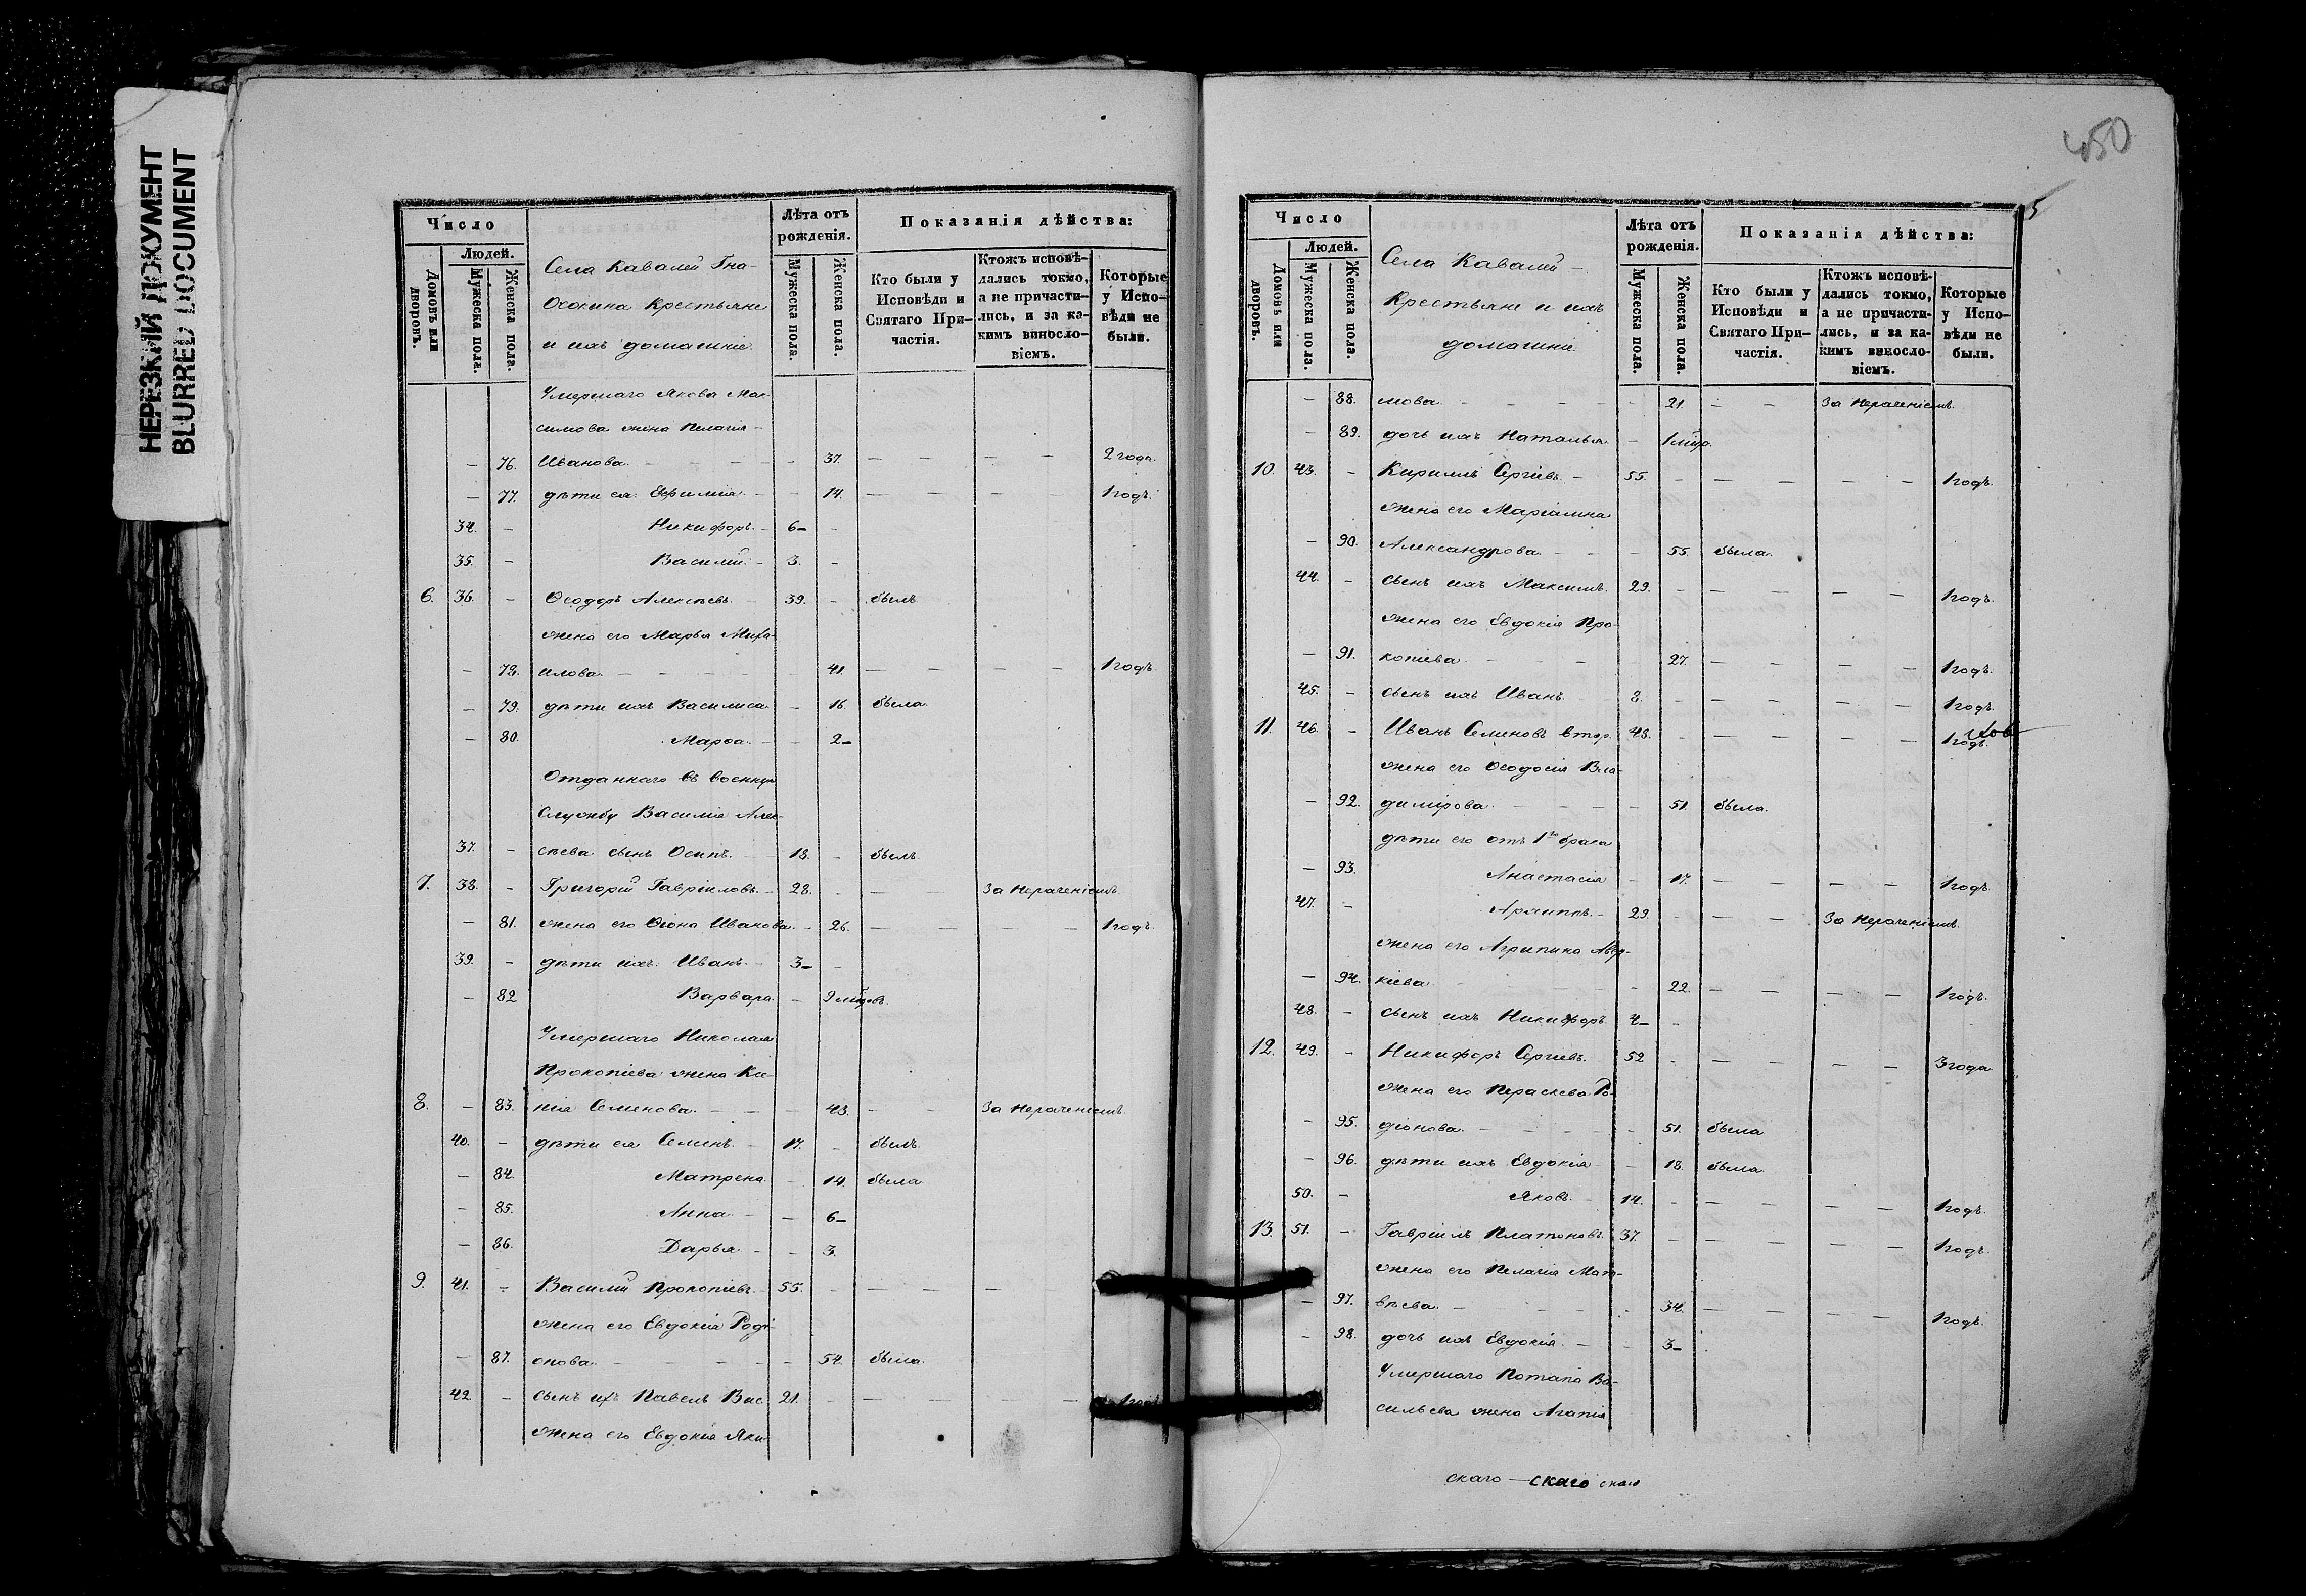 НЕРЕЗКИЙ ДОКУМЕНТ
BLURRED DOCUMENT
Число
Людей.
Домовъ или дворовъ.
Мужеска пола.
Женска пола.
Села Кавалей Гна-
крестьяне
и ихъ домашніе.
Лѣта отъ рожденія.
Мужеска пола.
Женска пола.
Показанія дѣйства:
Кто были у Исповѣди и Святаго При-частія.
Ктожъ исповѣ-дались токмо, а не причасти-лись, и за ка-кимъ винослο-віемъ.
Которые у Испо-вѣди не были.
Умершаго Якова Мак-
симова жена Пелагія
— 76. Иванова. — 37. — — — — 2 года.
— 77. дѣти ея: Евфимія — 14. — — — 1 годъ.
34. — Никифоръ. 6 —
35. — Василій. 3. —
6. 36. — Ѳеодоръ Алексѣевъ. 39. — былъ
жена его Марья Миха-
— 78. илова. — 41. — — — — 1 годъ
— 79. дѣти ихъ Василиса — 16. была.
— 80. Марѳа. — 2 —
Отданнаго въ военную
службу Василія Алек-
37. — сѣева сынъ Осипъ. 18. — былъ
7. 38. — Григорій Гавріиловъ. 28. — — — За нераченіемъ.
— 81. жена его Ѳіона Иванова. — 26. — — — — 1 годъ.
39. — дѣти ихъ: Иванъ. 3 — —
— 82 Варвара — 9 мцовъ.
Умершаго Николая
Прокопіева жена Ки-
8. — 83. нія Семенова. — 43. — — За нераченіемъ
40. — дѣти ея Семенъ. 17. — былъ.
— 84. Матрена — 14. была
— 85. Анна — 6 —
— 86. Дарья. — 3.
9. 41. — Василій Прокопіевъ. 55. — — — —
жена его Евдокія Роді-
— 87. онова. — 54. была.
42. — сынъ ихъ Павелъ Вас. 21. — — — — 1 годъ
жена его Евдокія Яки-
450
5
Число
Людей.
Домовъ или дворовъ.
Мужеска пола.
Женска пола.
Села Кавалей —
Крестьяне и ихъ
домашніе.
Лѣта отъ рожденія.
Мужеска пола.
Женска пола.
Показанія дѣйства:
Кто были у Исповѣди и Святаго При-частія.
Ктожъ исповѣ-дались токмо, а не причасти-лись, и за ка-кимъ винослο-віемъ.
Которые у Испо-вѣди не были.
— 88. мова. — 21. — — За нераченіемъ.
— 89. дочь ихъ Наталья. — 1 мцр.
10. 43. — Кириллъ Сергіевъ. 55. — — — — — 1 годъ.
жена его Маріамна
— 90. Александрова. — 55. была.
44. — сынъ ихъ Максимъ. 29. — — — — — 1 годъ.
жена его Евдокія Про-
— 91. копіева. — 27. — — — — 1 годъ.
45. — сынъ ихъ Иванъ. 8. — — — — — 1 годъ.
11. 46. — Иванъ Семеновъ втор. 48. — — — — — 1 годъ.
жена его Ѳеодосія Вла-
— 92. димірова. — 51. была.
дѣти его отъ 1го брака
— 93. Анастасія — 17. — — — — 1 годъ.
47. — Архиппъ. 29. — — — За нераченіемъ.
жена его Агрипина Авер-
— 94. кіева. — 22. — — — — 1 годъ.
48. — сынъ ихъ Никифоръ. 4 — —
12. 49. — Никифоръ Сергіевъ. 52 — — — — — 3 года.
жена его Параскева Ро-
— 95. діонова. — 51. была
— 96. дѣти ихъ Евдокія — 18. была.
50. — Яковъ. 14. — — — — — 1 годъ.
13. 51. — Гавріилъ Платоновъ. 37. — — — — — 1 годъ.
жена его Пелагія Мат-
— 97. вѣева. — 34. — — — — 1 годъ.
— 98. дочь ихъ Евдокія. — 3 —
Умершаго Потапа Ва-
сильева жена Агапія
скаго — скаго скаго